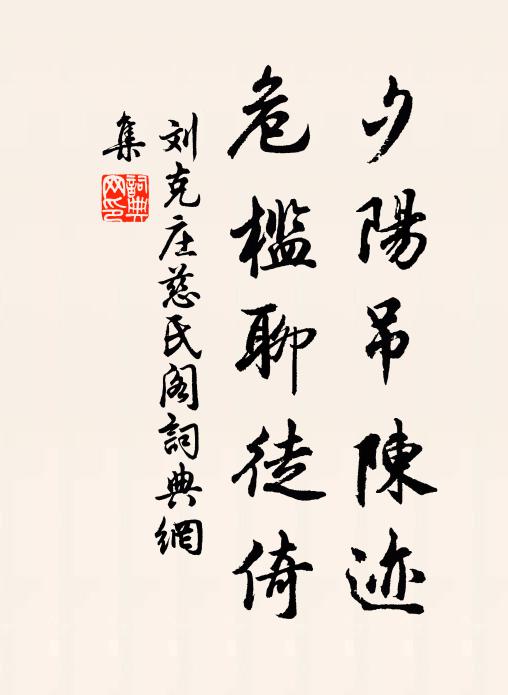 夕陽吊陳迹
危檻聊徒倚
刘克庄慈氏阁詞典網
集
詞典网印